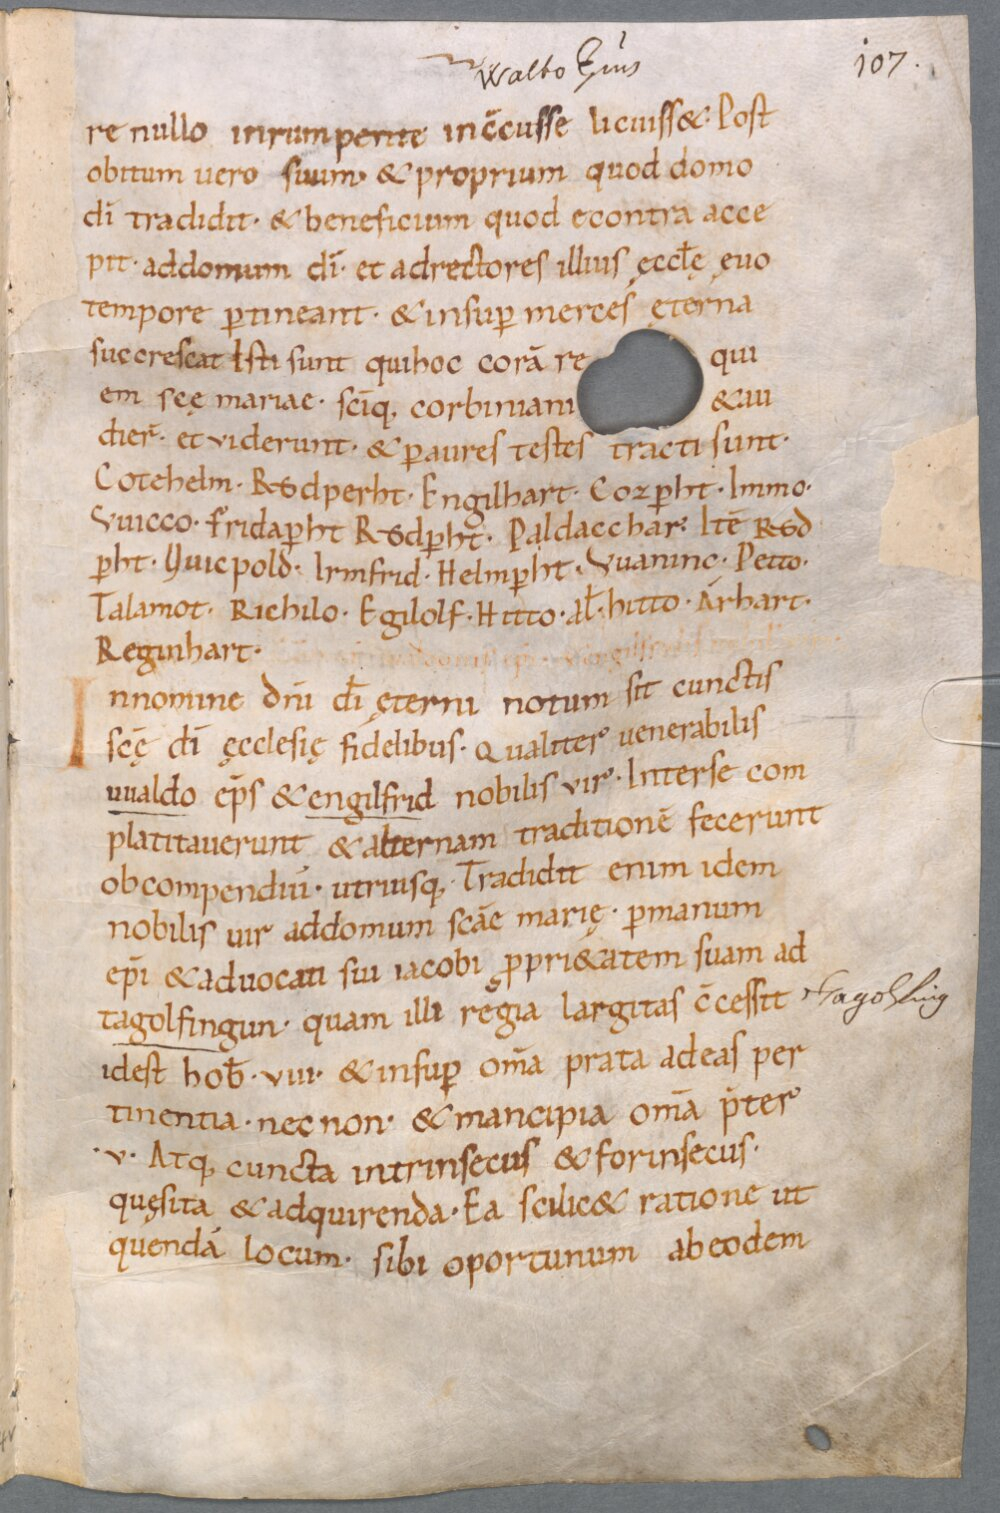 Walto Ep̄us
107.
re nullo inrumpente inc̄cusse licuiss&: Post
obitum uero suum· & proprium quod domo
dī tradidit· & beneficium quod econtra acce
pit· addomum dī· et adrectores illius ęccłę ęuo
tempore ꝑtineant· & insuꝑ merces ęterna
succrescat Isti sunt quihoc corā re qui
em scę mariae· scīq; corbiniani & aui
dier̄· et viderunt· & ꝑaures testes tracti sunt·
Cotehelm· Rodperht· Engilhart· Cozꝑht· Immo·
Vuicco· fridaꝑht Rodꝑht· Paldacchar: Itē Rod
ꝑht· Vuicpold· Irmfrid· Helmꝑht· Vuaninc· Petto·
Talamot· Richilo· Egilolf· Hitto· al̄· hitto· Arhart·
Reginhart·
Innomine dn̄i dī ęterni notum sit cunctis
scę̄ dī ęcclesię fidelibus· Qualiter uenerabilis
uualdo ep̄s & engilfrid nobilis vir· Interse com
platitauerunt & alternam traditionē fecerunt
obcompendiū· utriusq; Tradidit enim idem
nobilis uir addomum scāe marię· ꝑmanum
ep̄i & aduocati sui iacobi ꝓpri&atem suam ad
tagolfingun· quam illi regia largitas c̄cessit
Tagolfing
idest hob̄· viii· & insuꝑ om̄a prata adeas per
tinentia· nec non· & mancipia om̄a p̄ter
·v· Atq; cuncta intrinsecus & forinsecus·
quęsita & adquirenda· Ea scilic& ratione ut
quendā locum· sibi oportunum abeodem